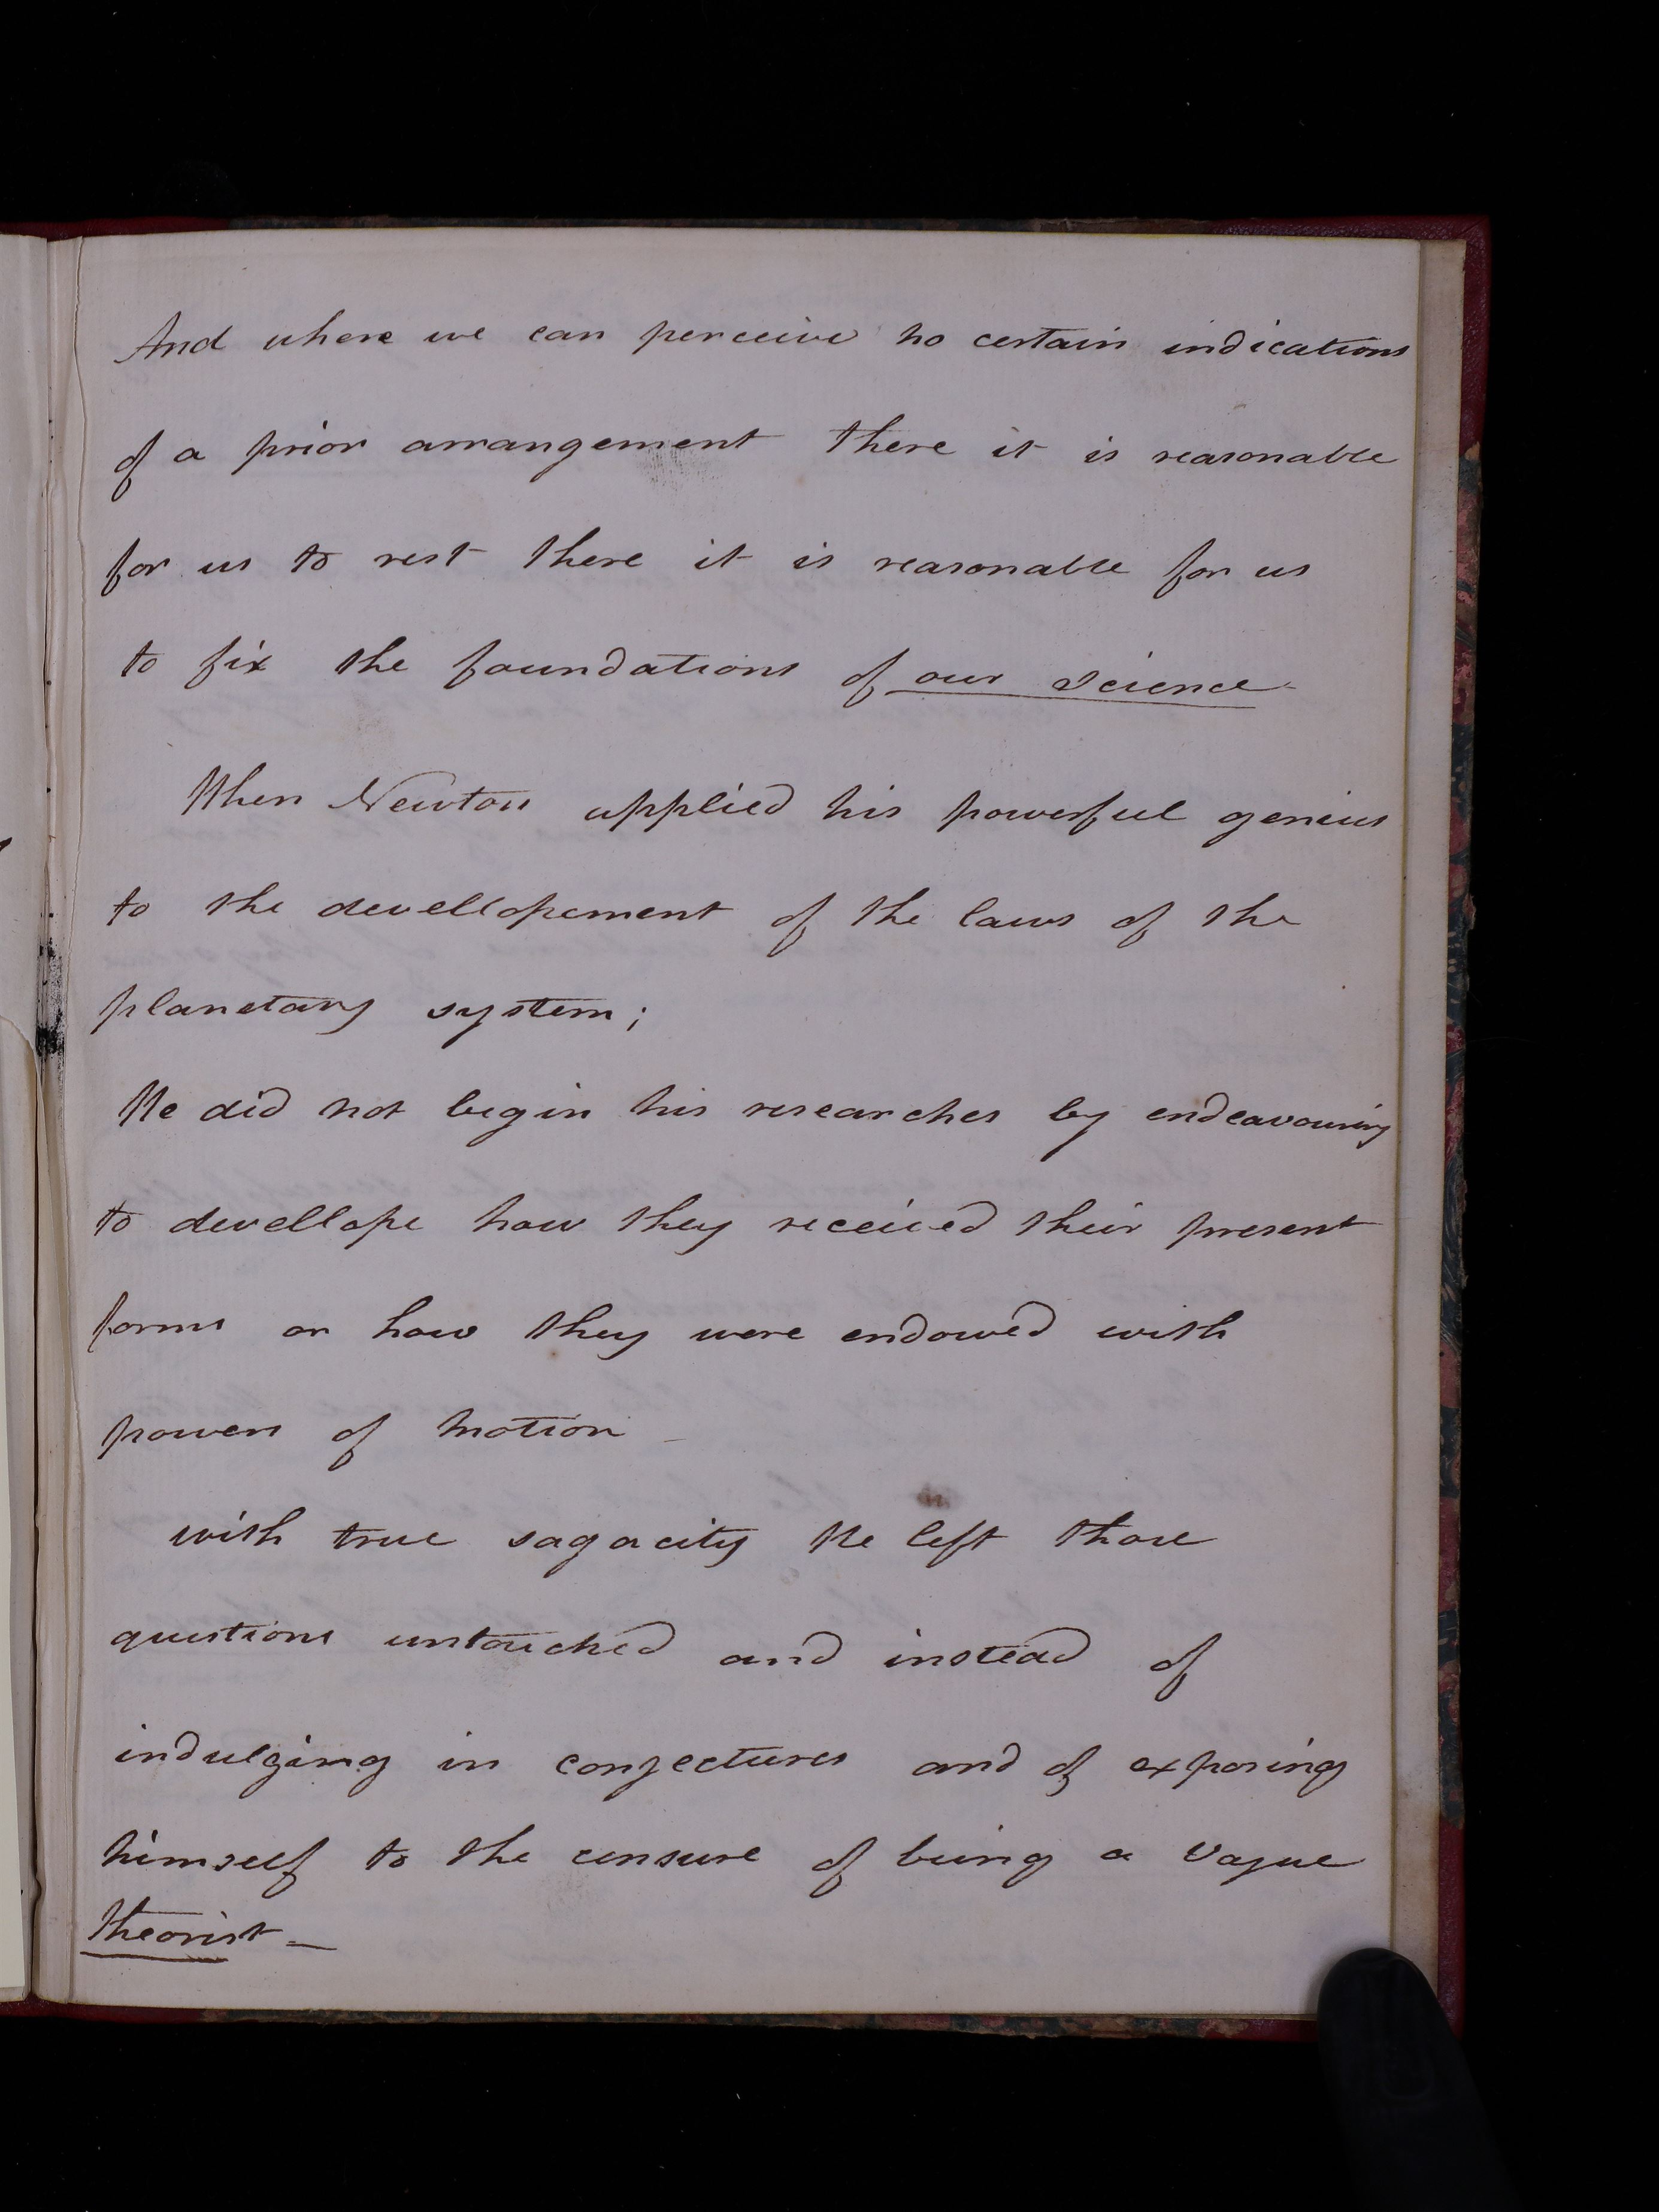 And where we can perceive no certain indications
of a prior arrangement there it is reasonable
for us to rest there it is reasonable for us
to fix the foundations of our science
When Newton applied his powerful genius
to the devellopement of the laws of the
planetary system;
He did not begin his researches by endeavouring
to devellope how they received their present
forms or how they were endowed with
powers of motion –
with true sagacity He left those
questions untouched and instead of
indulging in conjectures and of exposing
himself to the censure of being a vague
theorist –